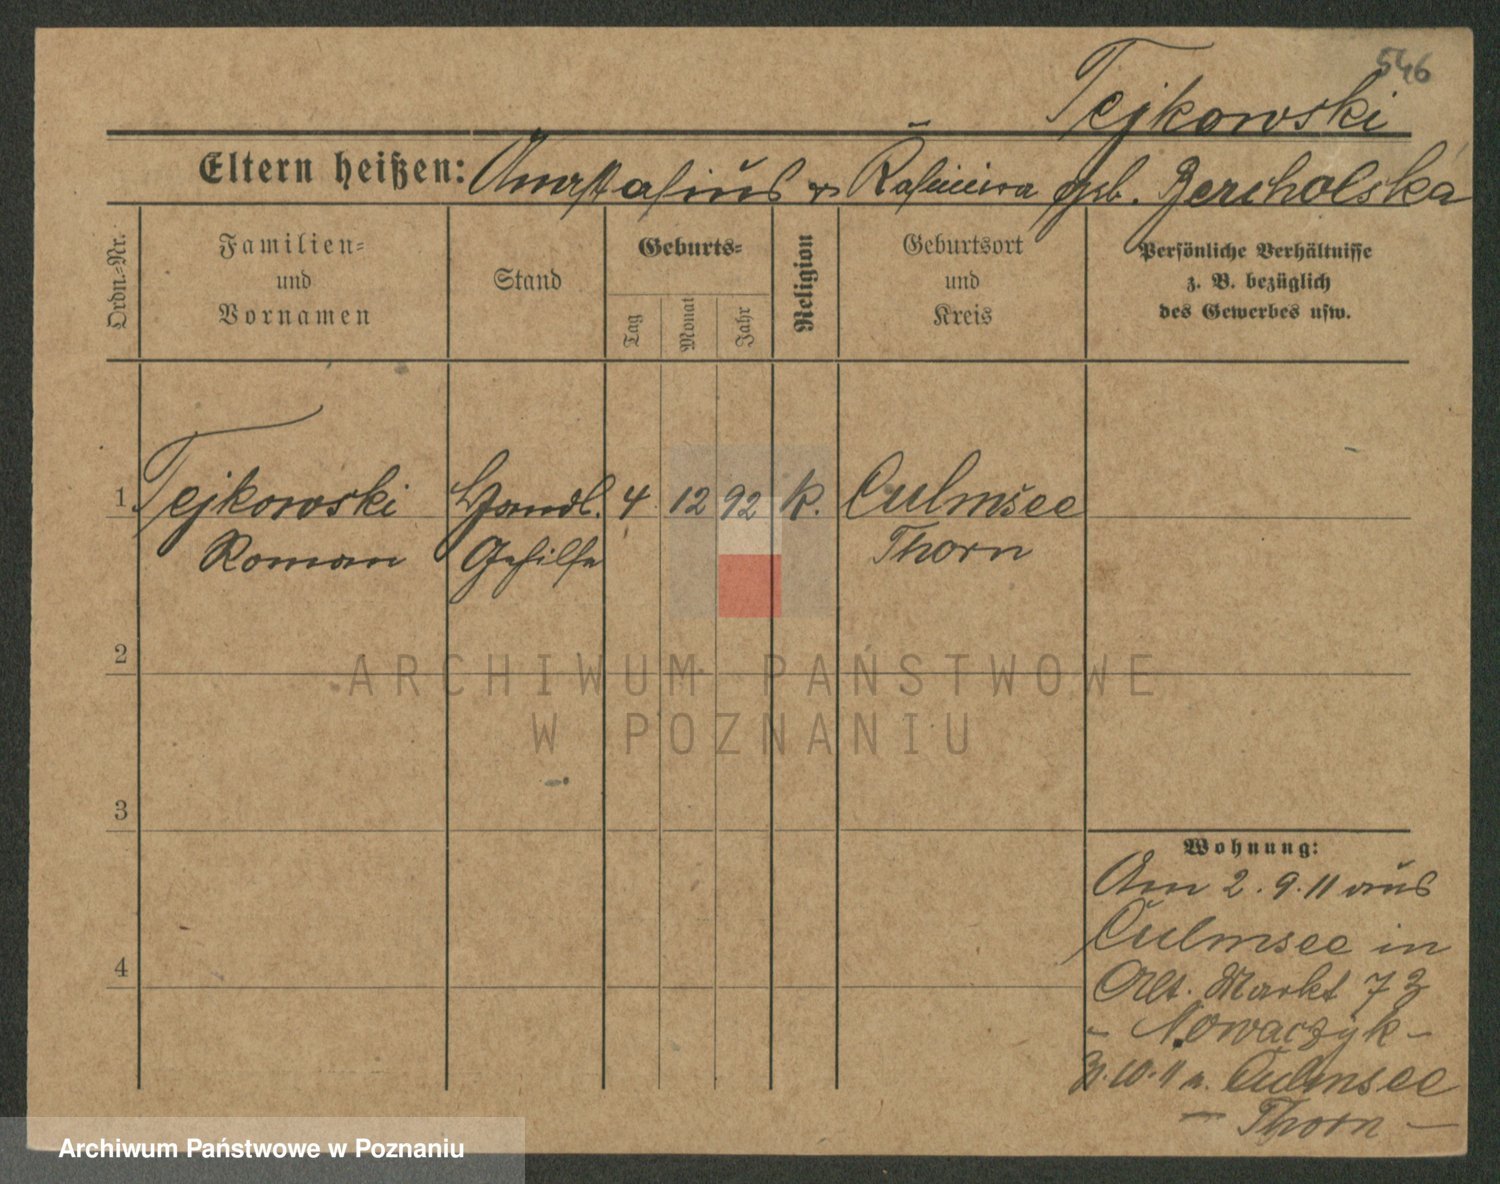 546
Tejkowski
Eltern heißen: Anastasius u Kasimira geb. Bercholska
Ordn.-Nr.
Familien-
und
Vornamen
Stand
Geburts-
Tag
Monat
Jahr
Religion
Geburtsort
und
Kreis
Persönliche Verhältnisse
z. B. bezüglich
des Gewerbes usw.
1 Tejkowski Handl. 4 12 92 k. Culmsee
Roman Gehilfe Thorn
2
3
4
Wohnung:
Am 2.9.11 aus
Culmsee in
Alt. Markt 73
- Nowaczyk -
10.11 n. Culmsee
- Thorn -
ARCHIWUM PAŃSTWOWE
W POZNANIU
Archiwum Państwowe w Poznaniu